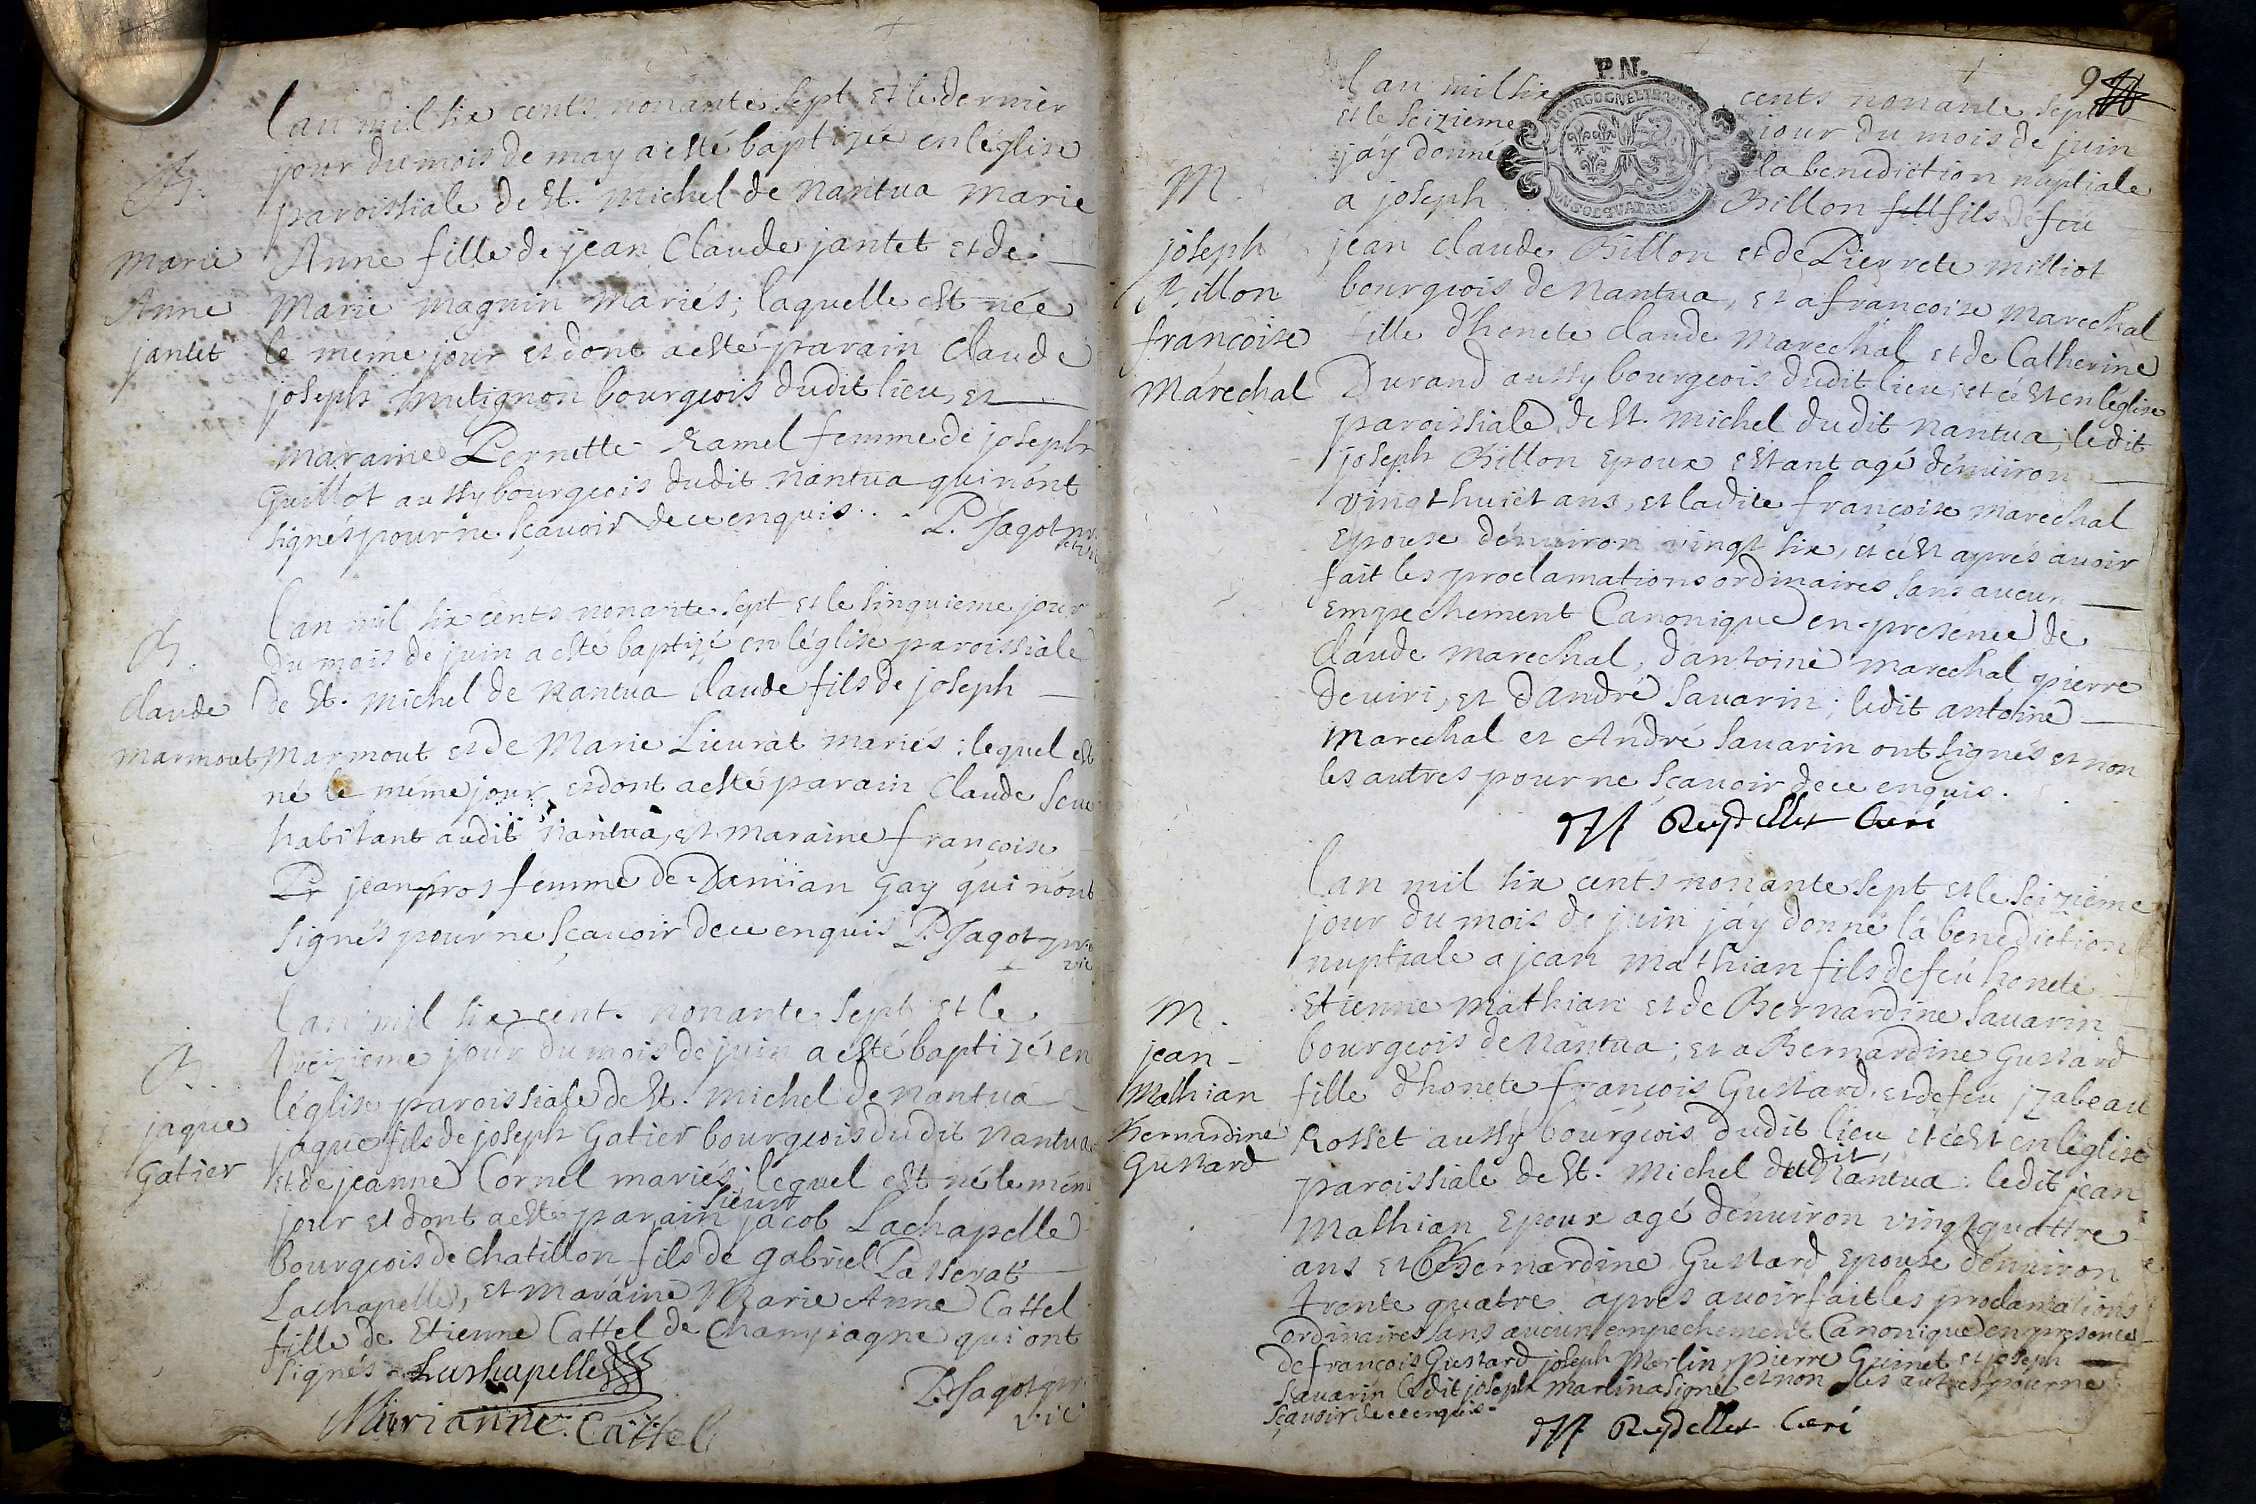 B.
Marie
Anne
jantet
Lan mil six cents nonante sept et le dernier
jour du mois de may a esté baptizée en léglise
paroissiale de St. Michel de Nantua Marie
Anne fille de jean Claude jantet et de
Marie maguin Mariés; laquelle est née
le méme jour et dont a esté parain Claude
joseph mutignon bourgeois dudit lieu, et
maraine Pernette Ramel femme de joseph
Guillot aussy bourgeois dudit Nantua qui nónt
signés pour ne sçauoir de ce enquis. P. Jagot pr.
vic
B.
Claude
Marmout
Lan mil six cents nonante sept et le sinquieme jour
du mois de juin a esté baptizé en léglise paroissiale
de St. Michel de Nantua Claude fils de joseph
Marmout et de Marie Lieurat mariés; lequel est
né le méme jour, et dont a esté parain Claude
habitant audit Nantua, et maraine françoise
jeanpros femme de Damian Gay qui nónt
signés pour ne sçauoir de ce enquis P. Jagot pr.
vic
B.
jaque
Gatier
Lan mil six cent nonante sept et le
treizieme jour du mois de juin a esté baptizé en
léglise paroissiale de St. Michel de Nantua
jaque fils de joseph Gatier bourgeois dudit Nantua
et de jeanne Cornel mariés; lequel est né le méme
sieur
jour et dont a esté parain jacob Lachapelle
Bourgeois de chatillon fils de gabriel Passerat
Lachapelle, et Maraine Marie Anne Cattel
fille de Etienne Cattel de Champagne qui ont
signés Lachapelle
P. Jagot pr.
vic
Marianne Cattel
9
P.N.
M.
joseph
Billon
françoise
Marechal
Lan mil six cents nonante sept
et le seizieme jour du mois de juin
jáy donné la benediction nuptiale
a joseph Billon fill fils de feu
jean Claude Billon et de Pierrete milliot
bourgeois de Nantua, et a françoise Marechal
fille d'honete Claude Marechal et de Catherine
Durand aussy bourgeois dudit lieu, et cést en léglise
paroissiale de St. Michel dudit Nantua; ledit
joseph Billon epoux estant agé dénuiron
vingt huict ans, et ladite françoise Marechal
epouse dénuiron vingt six, et cést aprés auoir
fait les proclamations ordinaires sans aucun
empechement Canonique en presence de
Claude Marechal, dantoine Marechal, pierre
deuiri, et dándré Sauarin; ledit antoine
Marechal et André Sauarin ont signés et non
les autres pour ne sçauoir de ce enquis.
Reydellet Curé
M.
jean
Mathian
Bernardine
Gustard
Lan mil six cents nonante sept et le seizième
jour du mois de juin jáy donné la benediction
nuptiale a jean Mathian fils de feu honete
Etienne Mathian et de Bernardine Sauarin
bourgeois de Nantua; et a Bernardine Gustard
fille d'honete françois Gustard, et de feu jzabeau
Rosset aussy bourgeois dudit lieu, et cést en léglise
paroissiale de St. Michel dudit Nantua; ledit jean
Mathian epoux agé dénuiron vingt quattre
ans et Bernardine Gustard epouse dénuiron
trente quatre apres auoir fait les proclamations
ordinaires sans aucun empechement Canonique en presence
de françois Gustard, joseph Merlin, pierre Guinet et joseph
Sauarin ledit joseph Marlin a signé et non les autres pour ne
sçauoir de ce enquis.
Reydellet Curé